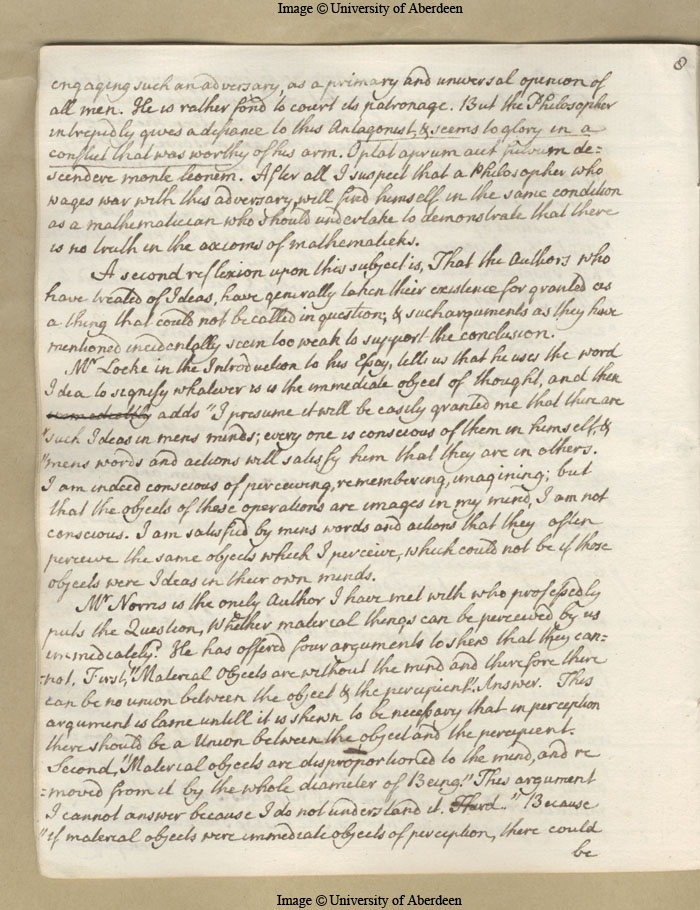 Image © University of Aberdeen
8
engaging such an adversary, as a primary and universal opinion of
all men. He is rather fond to court its patronage. But the Philosopher
intrepidly gives a defiance to this Antagonist, & seems to glory in a
conflict that was worthy of his arm. Optat aprum aut fulvum de=
scendere monte leonem. After all I suspect that a Philosopher who
wages war with this adversary, will find himself in the same condition
as a mathematician who should undertake to demonstrate that there
is no truth in the axioms of mathematicks.
A second reflexion upon this subject is, That the Authors who
have treated of Ideas, have generally taken their existence for granted as
a thing that could not be called in question; & such arguments as they have
mentioned incidentally seem too weak to support the conclusion.
Mr Locke in the Introduction to his Essay, tells us that he uses the word
Idea to signify whatever is is the immediate object of thought, and then
adds "I presume it will be easily granted me that there are
"such Ideas in mens minds; every one is conscious of them in himself, &
"mens words and actions will satisfy him that they are in others.
I am indeed conscious of perceiving, remembering, imagining; but
that the objects of these operations are images in my mind, I am not
conscious. I am satisfied by mens words and actions that they often
perceive the same objects which I perceive, which could not be if those
objects were Ideas in their own minds.
Mr Norris is the onely Author I have met with who professedly
puts the Question, Whether material things can be perceived by us
immediately? He has offered four arguments to shew that they can=
=not. First, "Material Objects are without the mind and therefore there
can be no union between the object & the percipient". Answer. This
argument is lame untill it is shewn to be necessary that in perception
there should be a Union between the object and the percipient.
Second, "Material objects are disproportioned to the mind, and re
=moved from it by the whole diameter of Being." This argument
I cannot answer because I do not understand it. Third. "Because
"if material objects were immediate objects of perception, there could
be
Image © University of Aberdeen